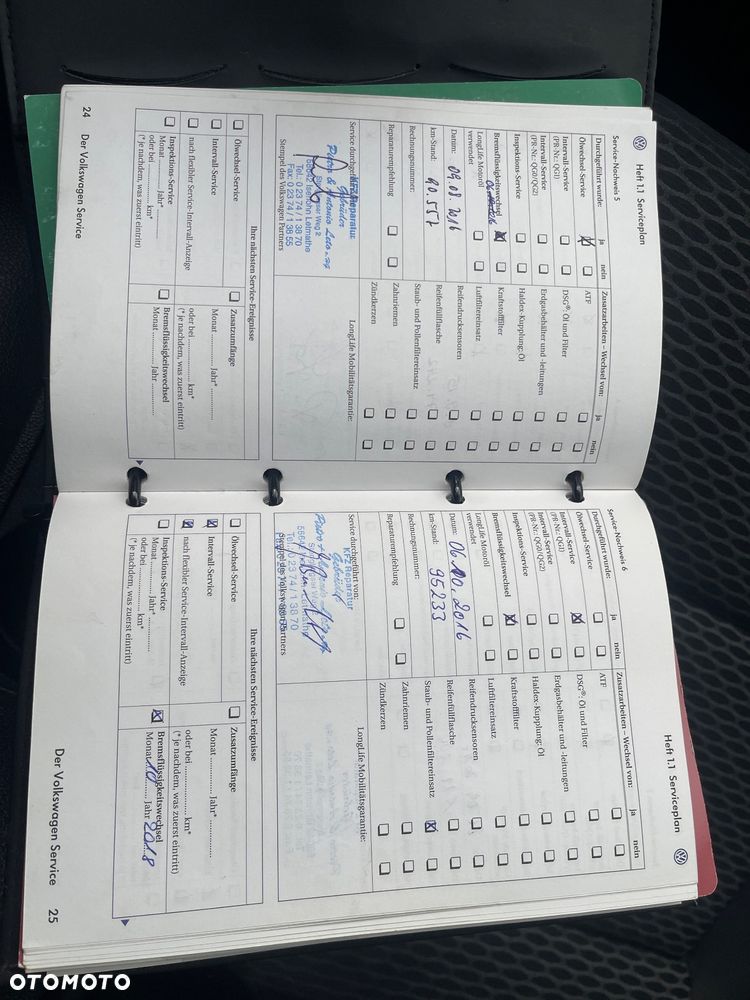 Heft 1.1 Serviceplan
Service-Nachweis 5
Durchgeführt wurde: ja nein
Ölwechsel-Service
Intervall-Service
(PR-Nr.: QG1)
Intervall-Service
(PR-Nr.: QG0/QG2)
Inspektions-Service
Bremsflüssigkeitswechsel
LongLife Motoröl
verwendet
Datum: 04.08.2016
km-Stand: 90.557
Rechnungsnummer:
Reparaturempfehlung
Zusatzarbeiten – Wechsel von: ja nein
ATF
DSG®: Öl und Filter
Erdgasbehälter und -leitungen
Haldex-Kupplung: Öl
Kraftstofffilter
Luftfiltereinsatz
Reifendrucksensoren
Reifenfüllflasche
Staub- und Pollenfiltereinsatz
Zahnriemen
Zündkerzen
LongLife Mobilitätsgarantie:
Service durchgeführt von:
KFZ Reparatur
Gebrüder
Pietro & Antonio Leto
58642 Iserlohn Letmathe
Tel.: 0 23 74 / 1 38 70
Fax: 0 23 74 / 1 38 55
Stempel des Volkswagen Partners
Ihre nächsten Service-Ereignisse
Ölwechsel-Service
Intervall-Service
nach flexibler Service-Intervall-Anzeige
Inspektions-Service
Monat ............ Jahr* ............
oder bei ............ km*
(* je nachdem, was zuerst eintritt)
Zusatzumfänge
Monat ............ Jahr* ............
oder bei ............ km*
(* je nachdem, was zuerst eintritt)
Bremsflüssigkeitswechsel
Monat ............ Jahr ............
24 Der Volkswagen Service
Heft 1.1 Serviceplan
Service-Nachweis 6
Durchgeführt wurde: ja nein
Ölwechsel-Service
Intervall-Service
(PR-Nr.: QG1)
Intervall-Service
(PR-Nr.: QG0/QG2)
Inspektions-Service
Bremsflüssigkeitswechsel
LongLife Motoröl
verwendet
Datum: 06.10.2016
km-Stand: 95233
Rechnungsnummer:
Reparaturempfehlung
Zusatzarbeiten – Wechsel von: ja nein
ATF
DSG®: Öl und Filter
Erdgasbehälter und -leitungen
Haldex-Kupplung: Öl
Kraftstofffilter
Luftfiltereinsatz
Reifendrucksensoren
Reifenfüllflasche
Staub- und Pollenfiltereinsatz
Zahnriemen
Zündkerzen
LongLife Mobilitätsgarantie:
Service durchgeführt von:
KFZ Reparatur
Gebrüder
Tel.: 0 23 74 / 1 38 70
Stempel des Volkswagen Partners
Ihre nächsten Service-Ereignisse
Ölwechsel-Service
Intervall-Service
nach flexibler Service-Intervall-Anzeige
Inspektions-Service
Monat ............ Jahr* ............
oder bei ............ km*
(* je nachdem, was zuerst eintritt)
Zusatzumfänge
Monat ............ Jahr* ............
oder bei ............ km*
(* je nachdem, was zuerst eintritt)
Bremsflüssigkeitswechsel
Monat 10 Jahr 2018
Der Volkswagen Service 25
OTOMOTO